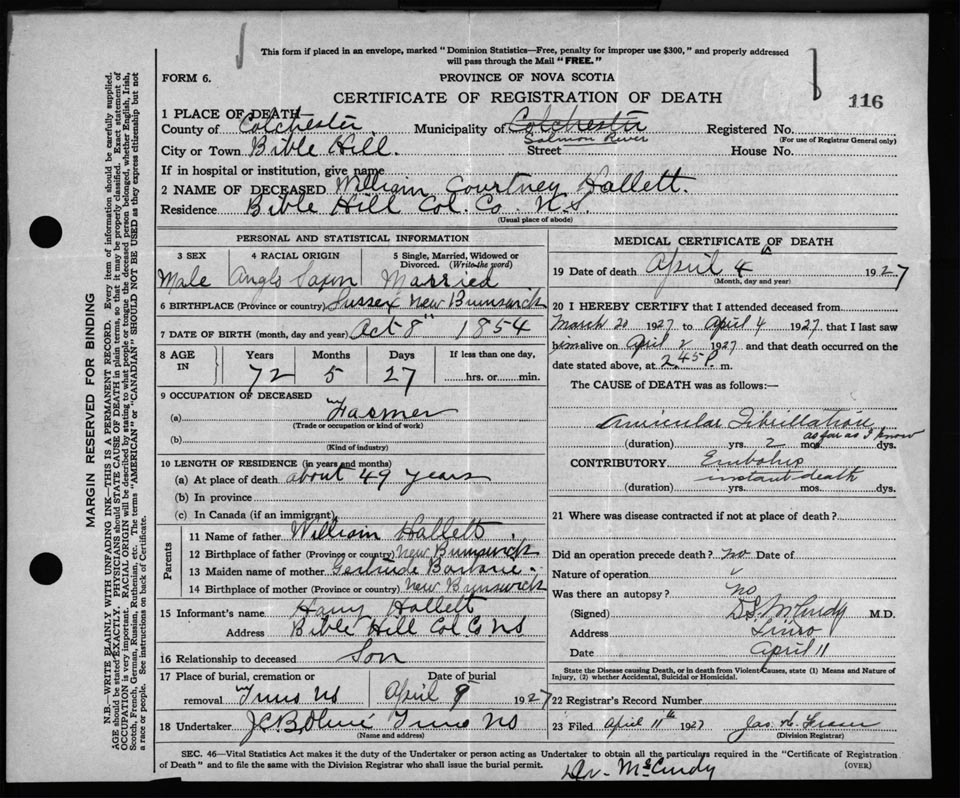 This form if placed in an envelope, marked "Dominion Statistics—Free, penalty for improper use $300," and properly addressed
will pass through the Mail "FREE."
FORM 6.
PROVINCE OF NOVA SCOTIA
116
CERTIFICATE OF REGISTRATION OF DEATH
1 PLACE OF DEATH
County of Colchester Municipality of Colchester Registered No.
Salmon River (For use of Registrar General only)
City or Town Bible Hill. Street House No.
If in hospital or institution, give name
2 NAME OF DECEASED William Courtney Hallett.
Residence Bible Hill Col. Co. N.S.
(Usual place of abode)
PERSONAL AND STATISTICAL INFORMATION
3 SEX 4 RACIAL ORIGIN 5 Single, Married, Widowed or Divorced. (Write the word)
Male Anglo Saxon Married
6 BIRTHPLACE (Province or country) Sussex New Brunswick
7 DATE OF BIRTH (month, day and year) Oct 8" 1854
8 AGE IN Years Months Days If less than one day,
72 5 27 hrs. or min.
9 OCCUPATION OF DECEASED
(a) Farmer
(Trade or occupation or kind of work)
(b)
(Kind of industry)
10 LENGTH OF RESIDENCE (in years and months)
(a) At place of death about 49 years
(b) In province
(c) In Canada (if an immigrant)
Parents
11 Name of father William Hallett
12 Birthplace of father (Province or country) New Brunswick
13 Maiden name of mother Gertrude
14 Birthplace of mother (Province or country) New Brunswick
15 Informant's name Harry Hallett
Address Bible Hill Col. Co NS
16 Relationship to deceased Son
17 Place of burial, cremation or Date of burial
removal Truro NS April 9 1927
18 Undertaker Truro NS
(Name and address)
MEDICAL CERTIFICATE OF DEATH
19 Date of death April 4 1927
(Month, day and year)
20 I HEREBY CERTIFY that I attended deceased from
March 20 1927 to April 4 1927 that I last saw
him alive on April 2 1927 and that death occurred on the
date stated above, at 2.45 P. m.
The CAUSE OF DEATH was as follows:—
Auricular Fibrillation
as far as I know
(duration) yrs. 2 mos. dys.
CONTRIBUTORY Embolus
instant death
(duration) yrs. mos. dys.
21 Where was disease contracted if not at place of death?
Did an operation precede death? no Date of
Nature of operation
Was there an autopsy? no
(Signed) D.S. McCurdy M.D.
Address Truro
Date April 11
State the Disease causing Death, or in death from Violent Causes, state (1) Means and Nature of
Injury, (2) whether Accidental, Suicidal or Homicidal.
22 Registrar's Record Number
23 Filed April 11th 1927 Jas. H. Fraser
(Division Registrar)
SEC. 46—Vital Statistics Act makes it the duty of the Undertaker or person acting as Undertaker to obtain all the particulars required in the "Certificate of Registration
of Death" and to file the same with the Division Registrar who shall issue the burial permit.
(OVER)
Dr. McCurdy
MARGIN RESERVED FOR BINDING
N.B.—WRITE PLAINLY WITH UNFADING INK—THIS IS A PERMANENT RECORD. Every item of information should be carefully supplied.
AGE should be stated EXACTLY. PHYSICIANS should STATE CAUSE OF DEATH in plain terms, so that it may be properly classified. Exact statement of
OCCUPATION is very important. RACIAL ORIGIN will be described by stating to what people or tongue the deceased person belonged, whether English, Irish,
Scotch, French, German, Russian, Ruthenian, etc. The terms "AMERICAN" or "CANADIAN" SHOULD NOT BE USED as they express citizenship but not
a race or people. See instructions on back of Certificate.